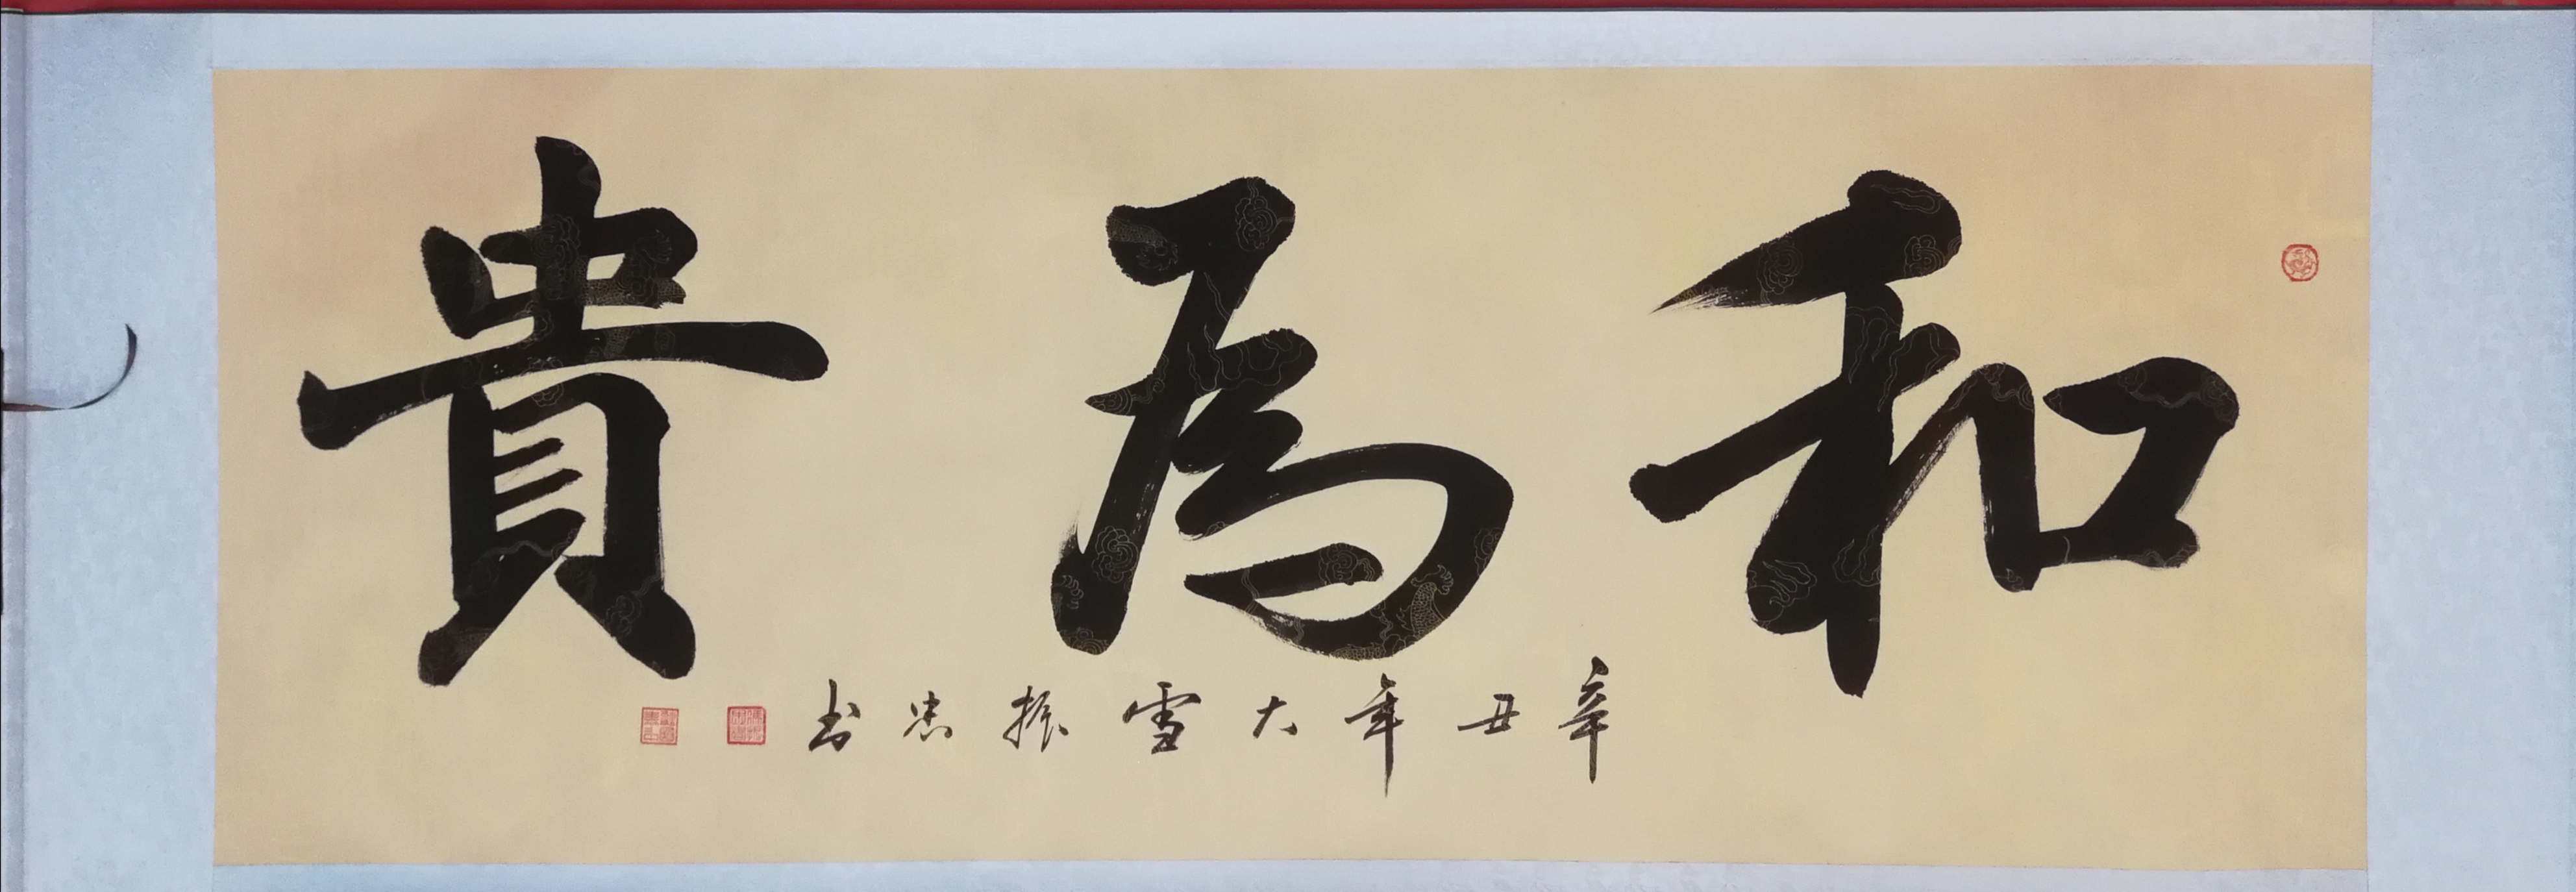 和為貴
辛丑年大雪振忠书